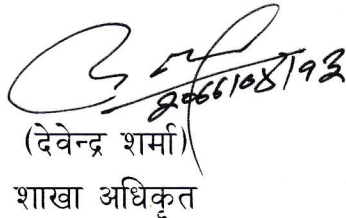 २०६६।०४।१३
(देवेन्द्र शर्मा)
शाखा अधिकृत